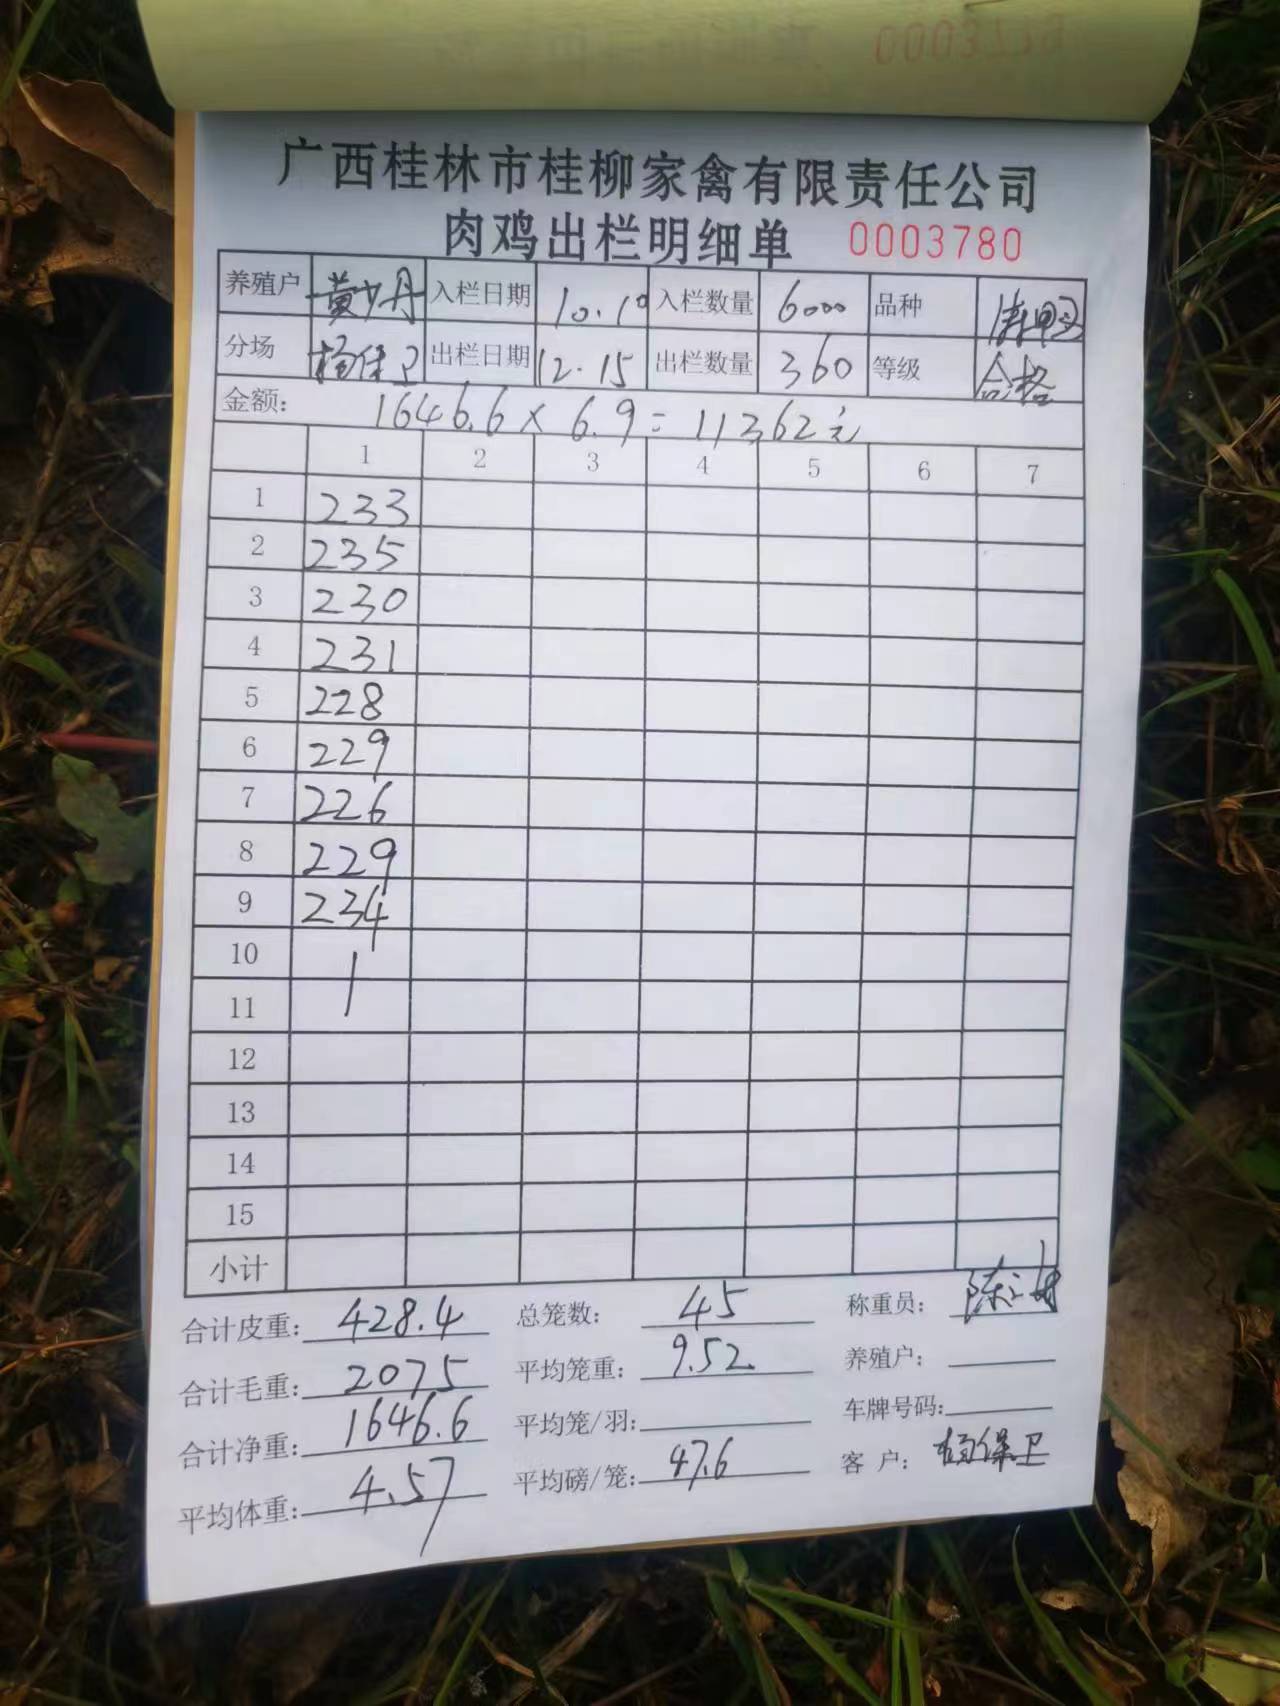 广西桂林市桂柳家禽有限责任公司
肉鸡出栏明细单 0003780
养殖户 黄少丹 入栏日期 10.10 入栏数量 6000 品种
分场 杨保卫 出栏日期 12.15 出栏数量 360 等级 合格
金额: 1646.6 × 6.9 = 11362元
1 2 3 4 5 6 7
1 233
2 235
3 230
4 231
5 228
6 229
7 226
8 229
9 234
10
11
12
13
14
15
小计
合计皮重: 428.4 总笼数: 45 称重员:
合计毛重: 2075 平均笼重: 9.52 养殖户:
合计净重: 1646.6 平均笼/羽: 车牌号码:
平均体重: 4.57 平均磅/笼: 47.6 客 户: 杨保卫